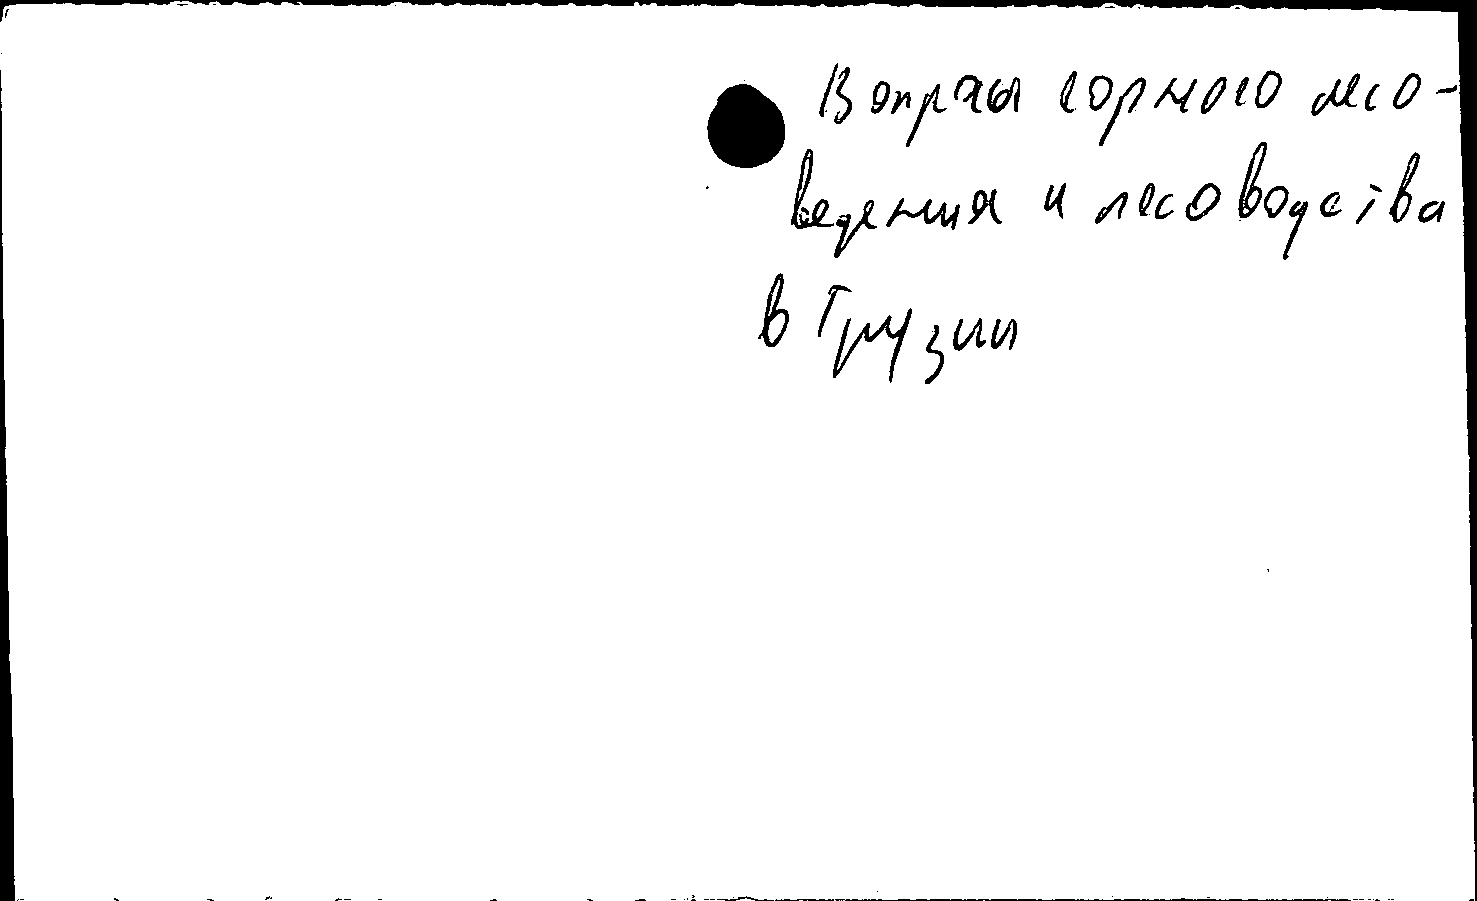 Вопросы горного лесо-
ведения и лесоводства
в Грузии